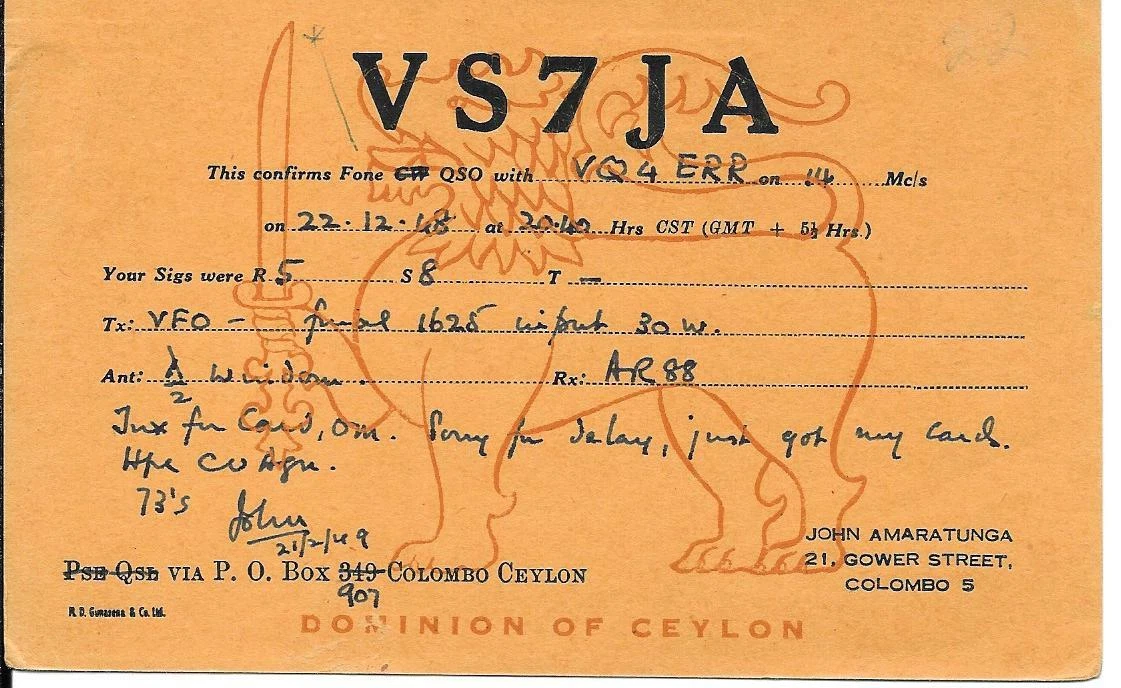 VS7JA
This confirms Fone CW QSO with VQ4ERR on 14 Mc/s
on 22.12.48 at 20.40 Hrs CST (GMT + 5½ Hrs.)
Your Sigs were R 5 S 8 T —
Tx: VFO - final 1625 input 30 W.
Ant: λ/2 Windom. Rx: AR88
Tnx for Card, Om. Sorry for delay, just got my cards.
Hpe CU Agn.
73's John
21/2/49
Pse Qsl via P. O. Box 349 Colombo Ceylon
907
JOHN AMARATUNGA
21, GOWER STREET,
COLOMBO 5
R. D. Gunasena & Co. Ltd.
DOMINION OF CEYLON